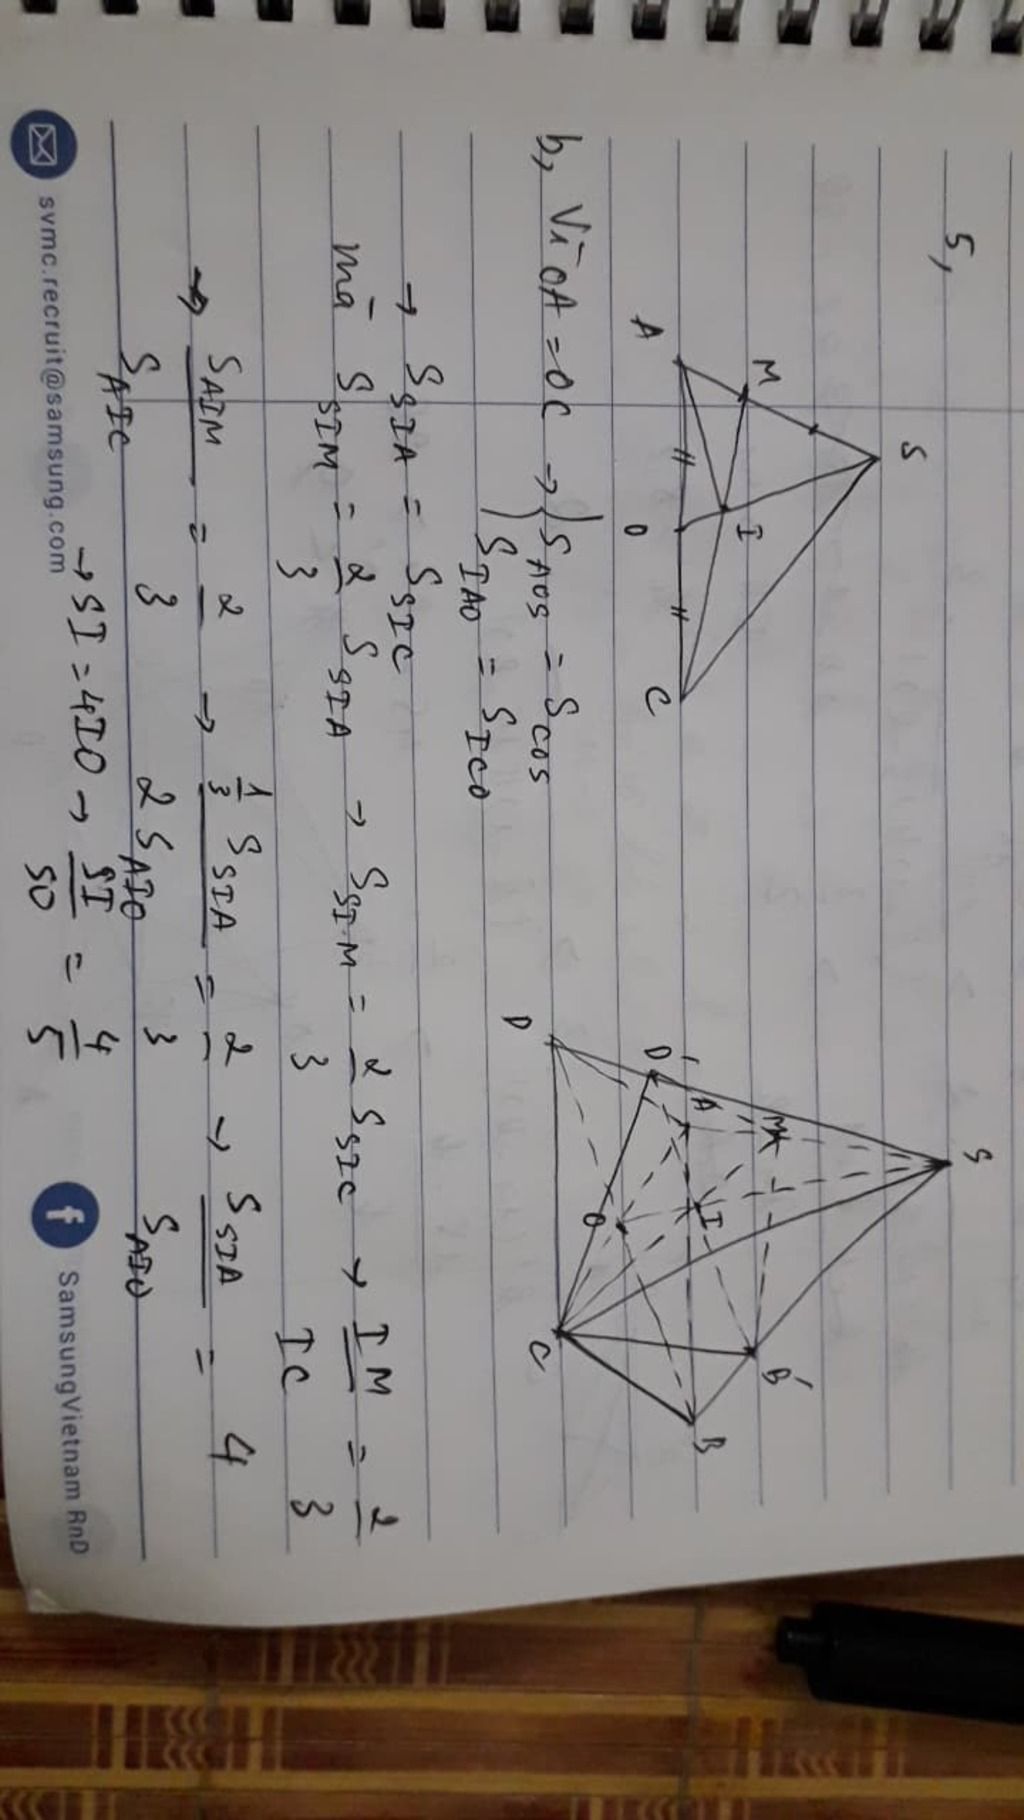 5,
S
M
I
A
O
C
S
M
B'
A
I
D'
B
O
D
C
b, Vì OA = OC → } S_AOS = S_COS
S_IAO = S_ICO
→ S_SIA = S_SIC
mà S_SIM = 2/3 S_SIA → S_SIM = 2/3 S_SIC → IM/IC = 2/3
→ S_AIM/S_AIC = 2/3 → 1/3 S_SIA/2 S_AIO = 2/3 → S_SIA/S_AIO = 4
→ SI = 4IO → SI/SO = 4/5
svmc.recruit@samsung.com
f SamsungVietnam RnD